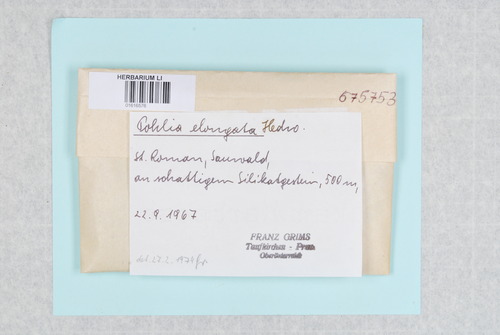 HERBARIUM LI
675753
Pohlia elongata Hedw.
St. Roman, Sauwald,
an schattigem Silikatgestein, 500 m,
22.9.1967
FRANZ GRIMS
Taufkirchen - Pram
Oberösterreich